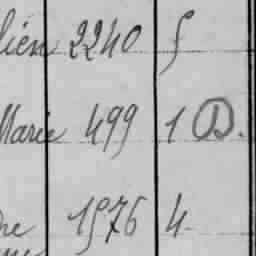 lien 2240 5
Marie 499 1 D.
ne 1576 4